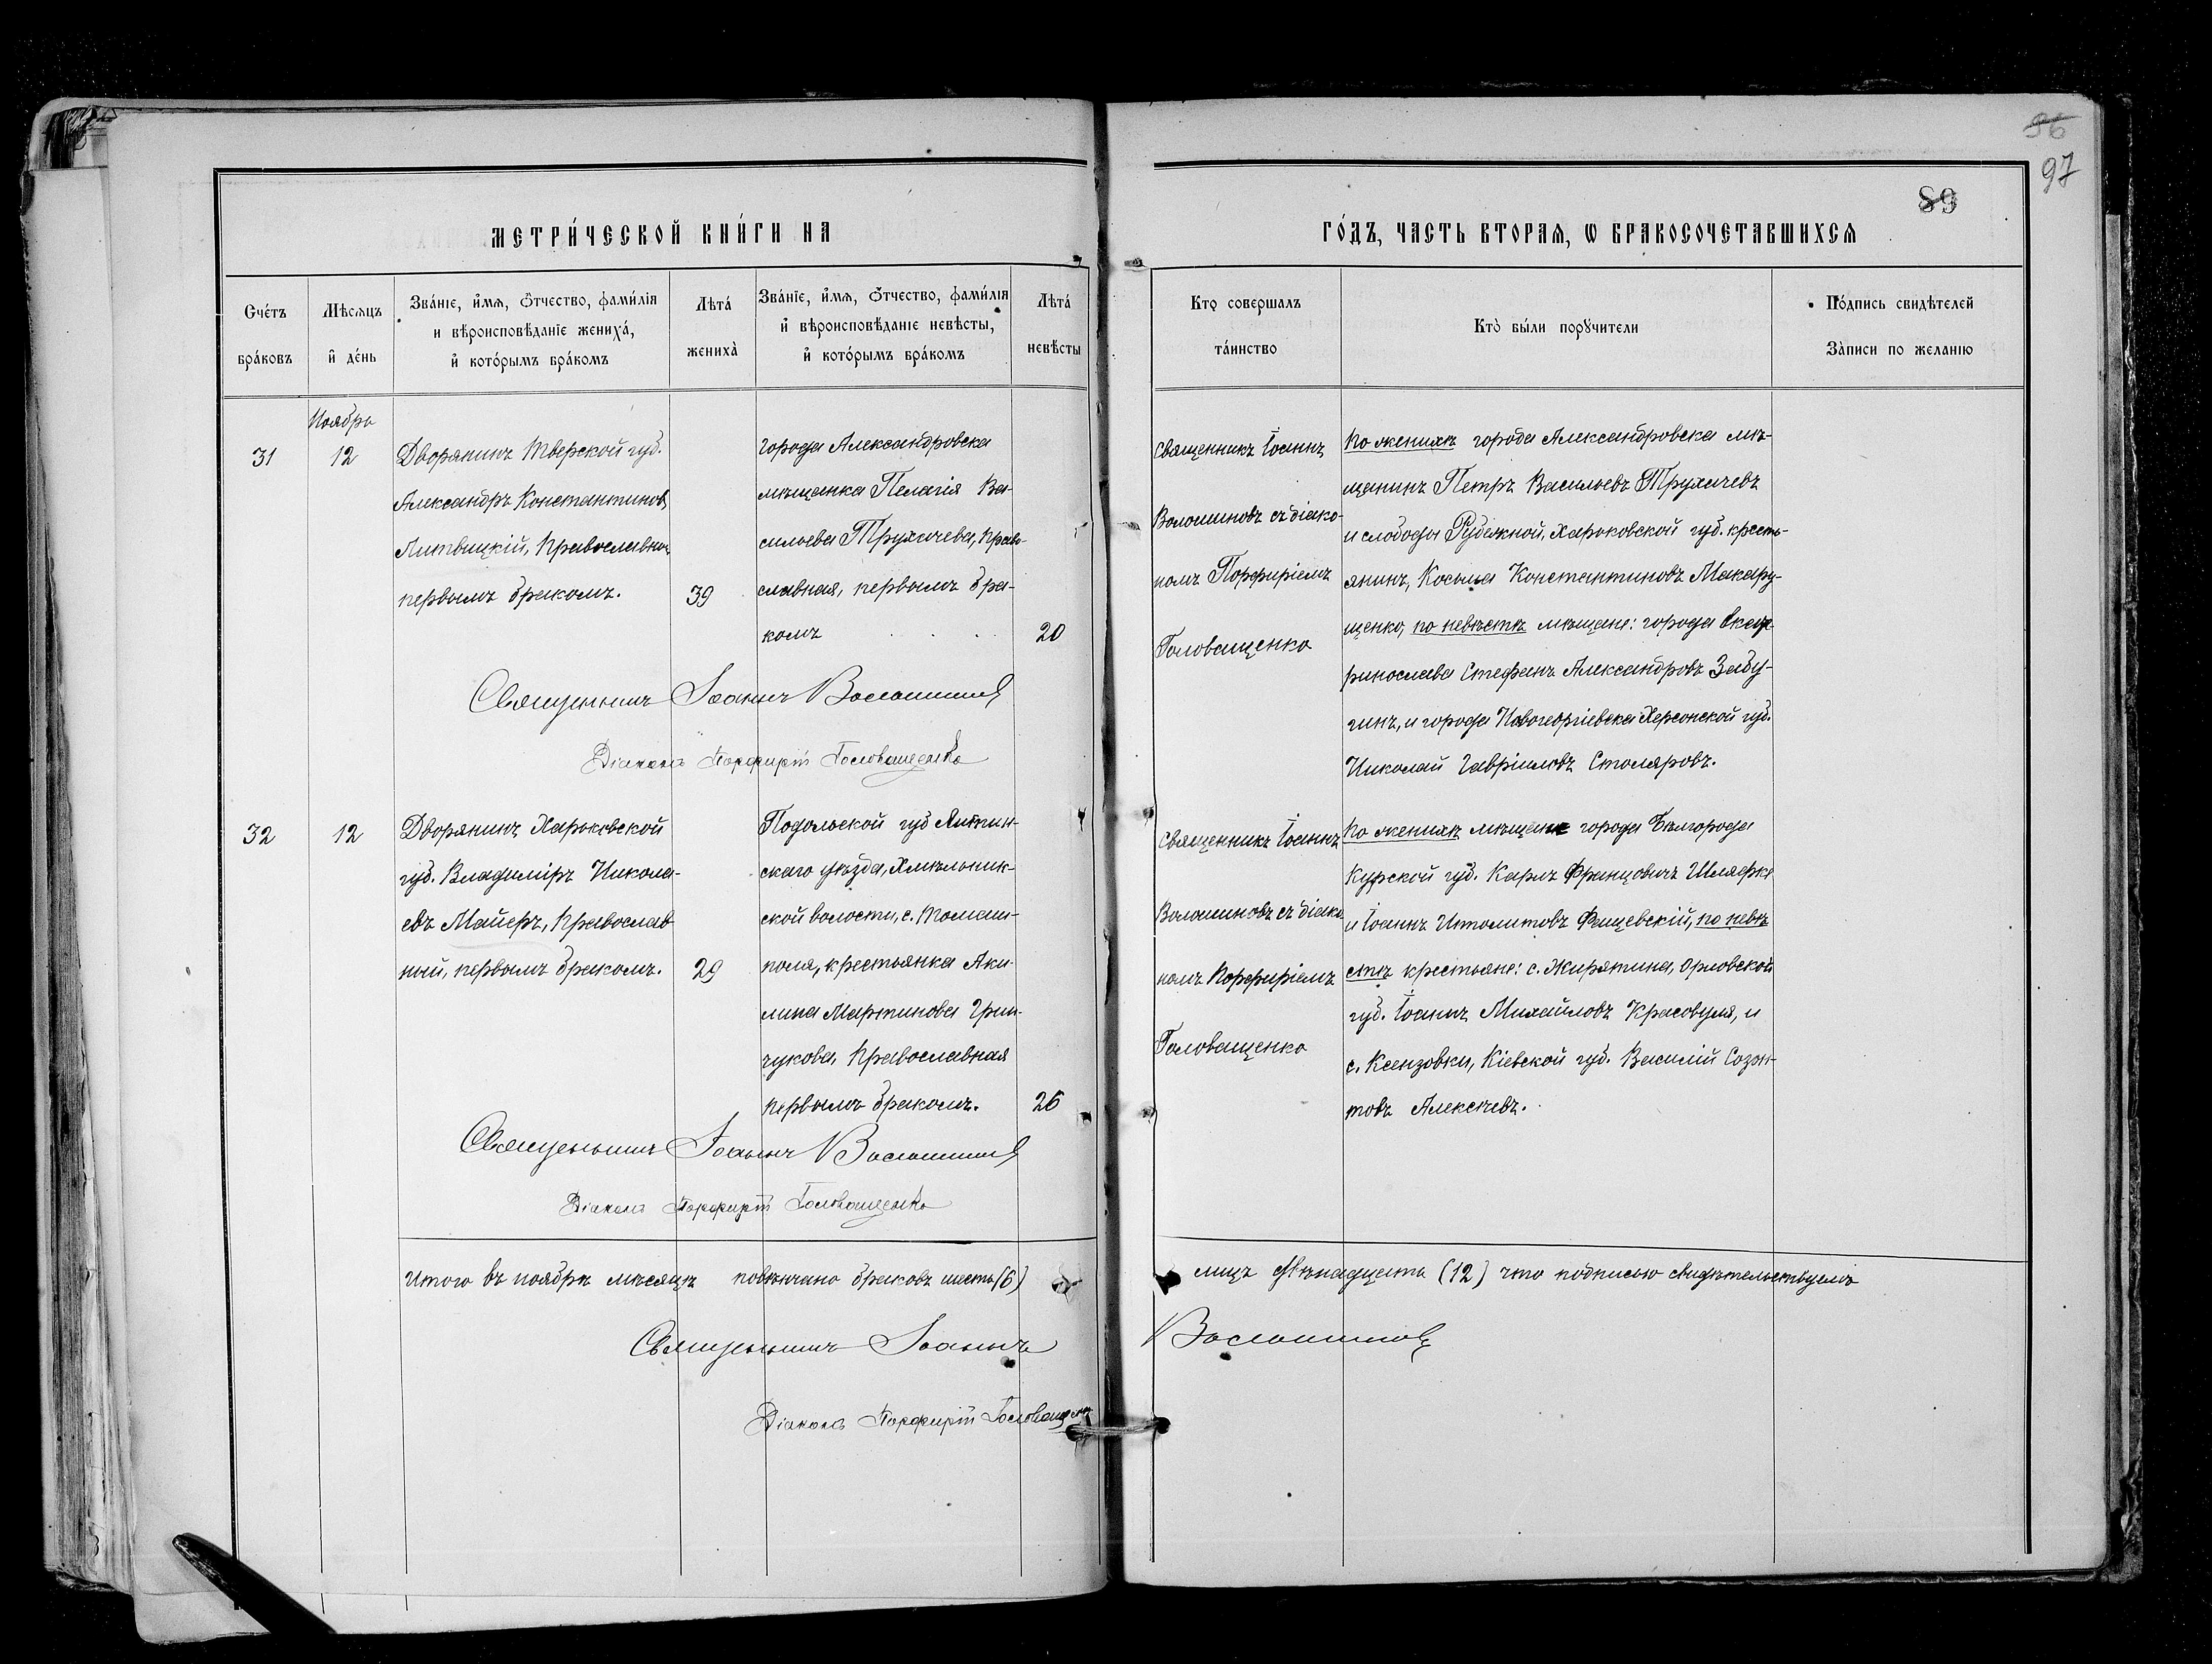 96
97
89
МЕТРИ́ЧЕСКОЙ КНИ́ГИ НА
ГО́ДЪ, ЧАСТЬ ВТОРАѦ, Ѡ БРАКОСОЧЕТАВШИХСѦ
Сче́тъ бра́ковъ
Мѣсѧцъ и҆ де́нь
Зва́нїе, и҆́мѧ, ѻ҆́тчество, фами́лїѧ
и вѣроисповѣданїе жениха́,
и҆ кото́рымъ бра́комъ
Лѣта́ жениха̀
Зва́нїе, и҆́мѧ, ѻ҆́тчество, фами́лїѧ
и҆ вѣроисповѣданїе невѣсты,
и҆ кото́рымъ бра́комъ
Лѣта́ невѣсты
Кто совершалъ та́инство
Кто̀ бы́ли порꙋчители
По́дпись свидѣтелей
За̀писи по желанїю
Ноябрь
31
12
Дворянинъ Тверской губ.
Александръ Константиновъ
Литвицкій, Православн.
первымъ бракомъ.
39
города Александровска
мѣщанка Пелагія Ва-
сильева Трухачева, Право-
славная, первымъ бра-
комъ
20
Священникъ Іоаннъ
Волошиновъ съ діако-
номъ Порфиріемъ
Головащенко
По женихѣ города Александровска мѣ-
щанинъ Петръ Васильевъ Трухачевъ
и слободы Рубежной, Харьковской губ. кресть-
янинъ, Косьма Константиновъ Макару-
щенко, по невѣстѣ мѣщане: города Екате-
ринослава Стефанъ Александровъ Забу-
гинъ, и города Новогеоргіевска Херсонской губ.
Николай Гавріиловъ Столяровъ.
Священникъ Іоаннъ Волошиновъ
Діаконъ Порфирій Головащенко
32
12
Дворянинъ Харьковской
губ. Владиміръ Никола-
евъ Майеръ, Православ-
ный, первымъ бракомъ.
29
Подольской губ Литин-
скаго уѣзда, Хмѣльник-
ской волости, с. Томаш-
поля, крестьянка Аки-
лина Мартинова Грин-
чукова, Православная
первымъ бракомъ.
26
Священникъ Іоаннъ
Волошиновъ съ діако-
номъ Порфиріемъ
Головащенко
По женихѣ мѣщане города Бѣлгорода
Курской губ. Карлъ Францовичъ Шляфке
и Іоаннъ Иполитовъ Фащевскій, по невѣ-
стѣ крестьяне: с. Жирятина, Орловской
губ. Іоаннъ Михайловъ Красовуля, и
с. Ксензовки, Кіевской губ. Василій Созон-
товъ Алексѣевъ.
Священникъ Іоаннъ Волошиновъ
Діаконъ Порфирій Головащенко
Итого въ ноябрѣ мѣсяцѣ повѣнчано браковъ шесть (6) лицъ двѣнадцать (12) что подписью свидѣтельствуемъ
Священникъ Іоаннъ Волошиновъ
Діаконъ Порфирій Головащенко